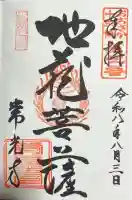 奉拝
令和八年八月三日
地蔵菩薩
常光寺